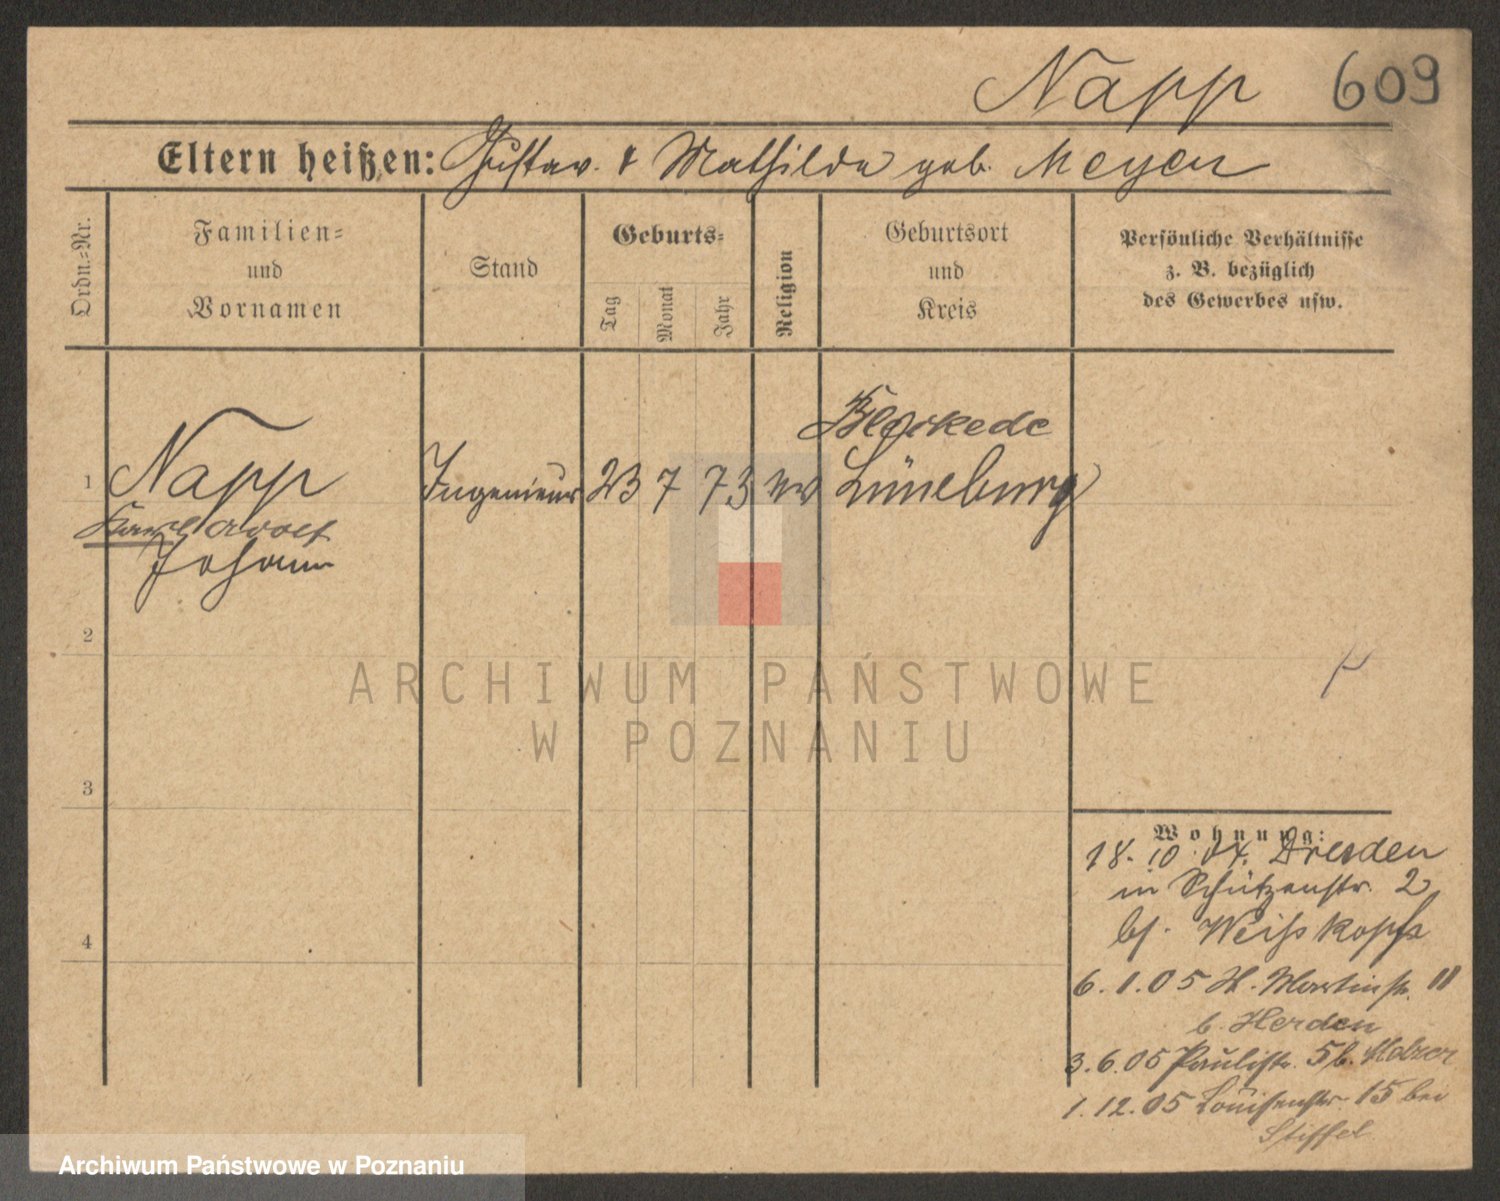 Napp 609
Eltern heißen: Gustav. & Mathilde geb. Meyer
Ordn.-Nr.
Familien-
und
Vornamen
Stand
Geburts-
Tag
Monat
Jahr
Religion
Geburtsort
und
Kreis
Persönliche Verhältnisse
z. B. bezüglich
des Gewerbes usw.
Bleckede
1 Napp Ingenieur 23 7 73 ev Lüneburg
Karl Adolf
Johann
2
3
4
ARCHIWUM PAŃSTWOWE
W POZNANIU
Wohnung:
18. 10. 04. Dresden
in Schützenstr. 2
bf. Weißkopf
6. 1. 05 St. Martinstr. 11
b. Herden
3. 6. 05 Paulistr. 5 b.
1. 12. 05 Louisenstr. 15 bei
Stiffel
Archiwum Państwowe w Poznaniu